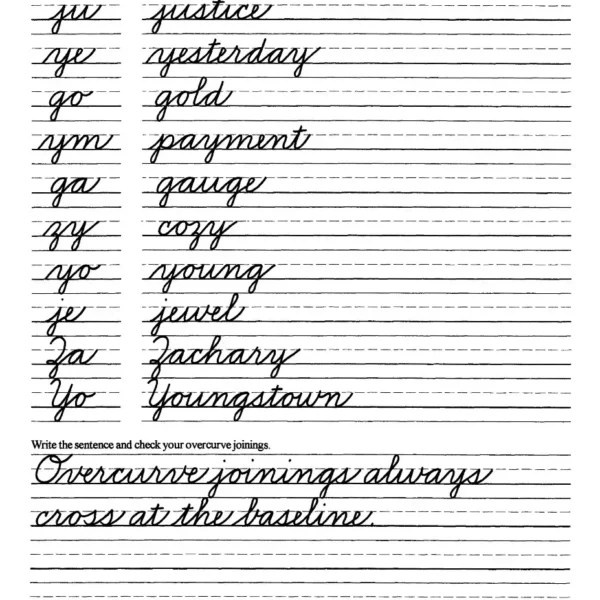 ju justice
ye yesterday
go gold
ym payment
ga gauge
zy cozy
yo young
je jewel
Za Zachary
Yo Youngstown
Write the sentence and check your overcurve joinings.
Overcurve joinings always
cross at the baseline.